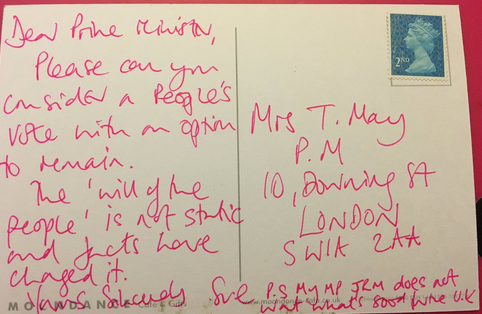 Dear Prime Minister,
Please can you
consider a People's
Vote with an option
to remain.
The 'will of the
people' is not static
and facts have
changed it.
Yours Sincerely Sue
2ND
Mrs T. May
P.M
10, Downing St
LONDON
SW1A 2AA
P.S My MP JRM does not
want what's good for the U.K
MOONDANCE Cards & Gifts